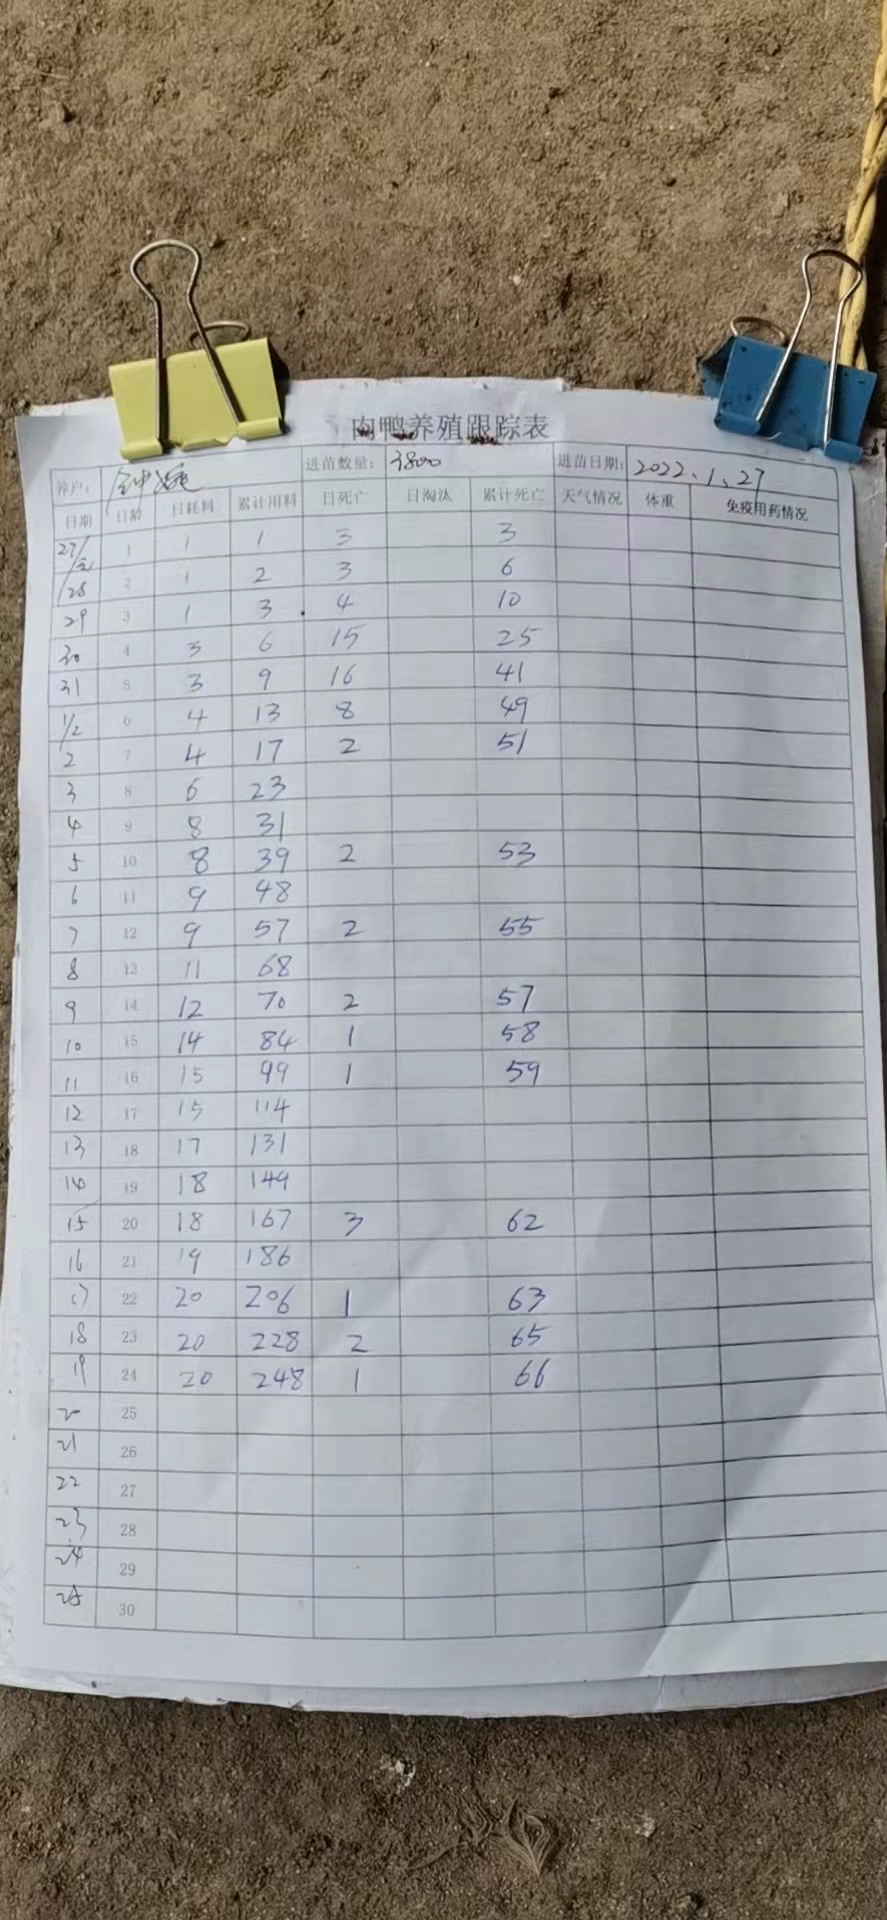 肉鸭养殖跟踪表
养户: 钟 进苗数量: 3800 进苗日期: 2022.1.27
日期 日龄 日耗料 累计用料 日死亡 日淘汰 累计死亡 天气情况 体重 免疫用药情况
27/ 1 1 1 3 3
/28 2 1 2 3 6
29 3 1 3 4 10
30 4 3 6 15 25
31 5 3 9 16 41
1/2 6 4 13 8 49
2 7 4 17 2 51
3 8 6 23
4 9 8 31
5 10 8 39 2 53
6 11 9 48
7 12 9 57 2 55
8 13 11 68
9 14 12 70 2 57
10 15 14 84 1 58
11 16 15 99 1 59
12 17 15 114
13 18 17 131
14 19 18 149
15 20 18 167 3 62
16 21 19 186
17 22 20 206 1 63
18 23 20 228 2 65
19 24 20 248 1 66
20 25
21 26
22 27
23 28
24 29
25 30